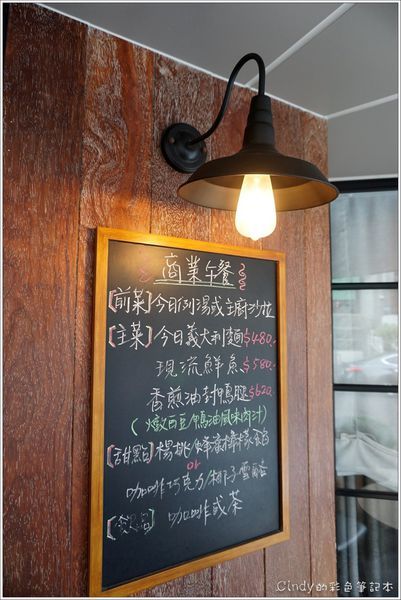 商業午餐
[前菜]今日例湯或主廚沙拉
[主菜]今日義大利麵$480.-
現流鮮魚$580.-
香煎油封鴨腿$620.-
(燉西豆/鴨油風味肉汁)
[甜點]楊桃/蜂蜜檸檬
or
咖啡巧克力/椰子雪酪
咖啡或茶
Cindy的彩色筆記本